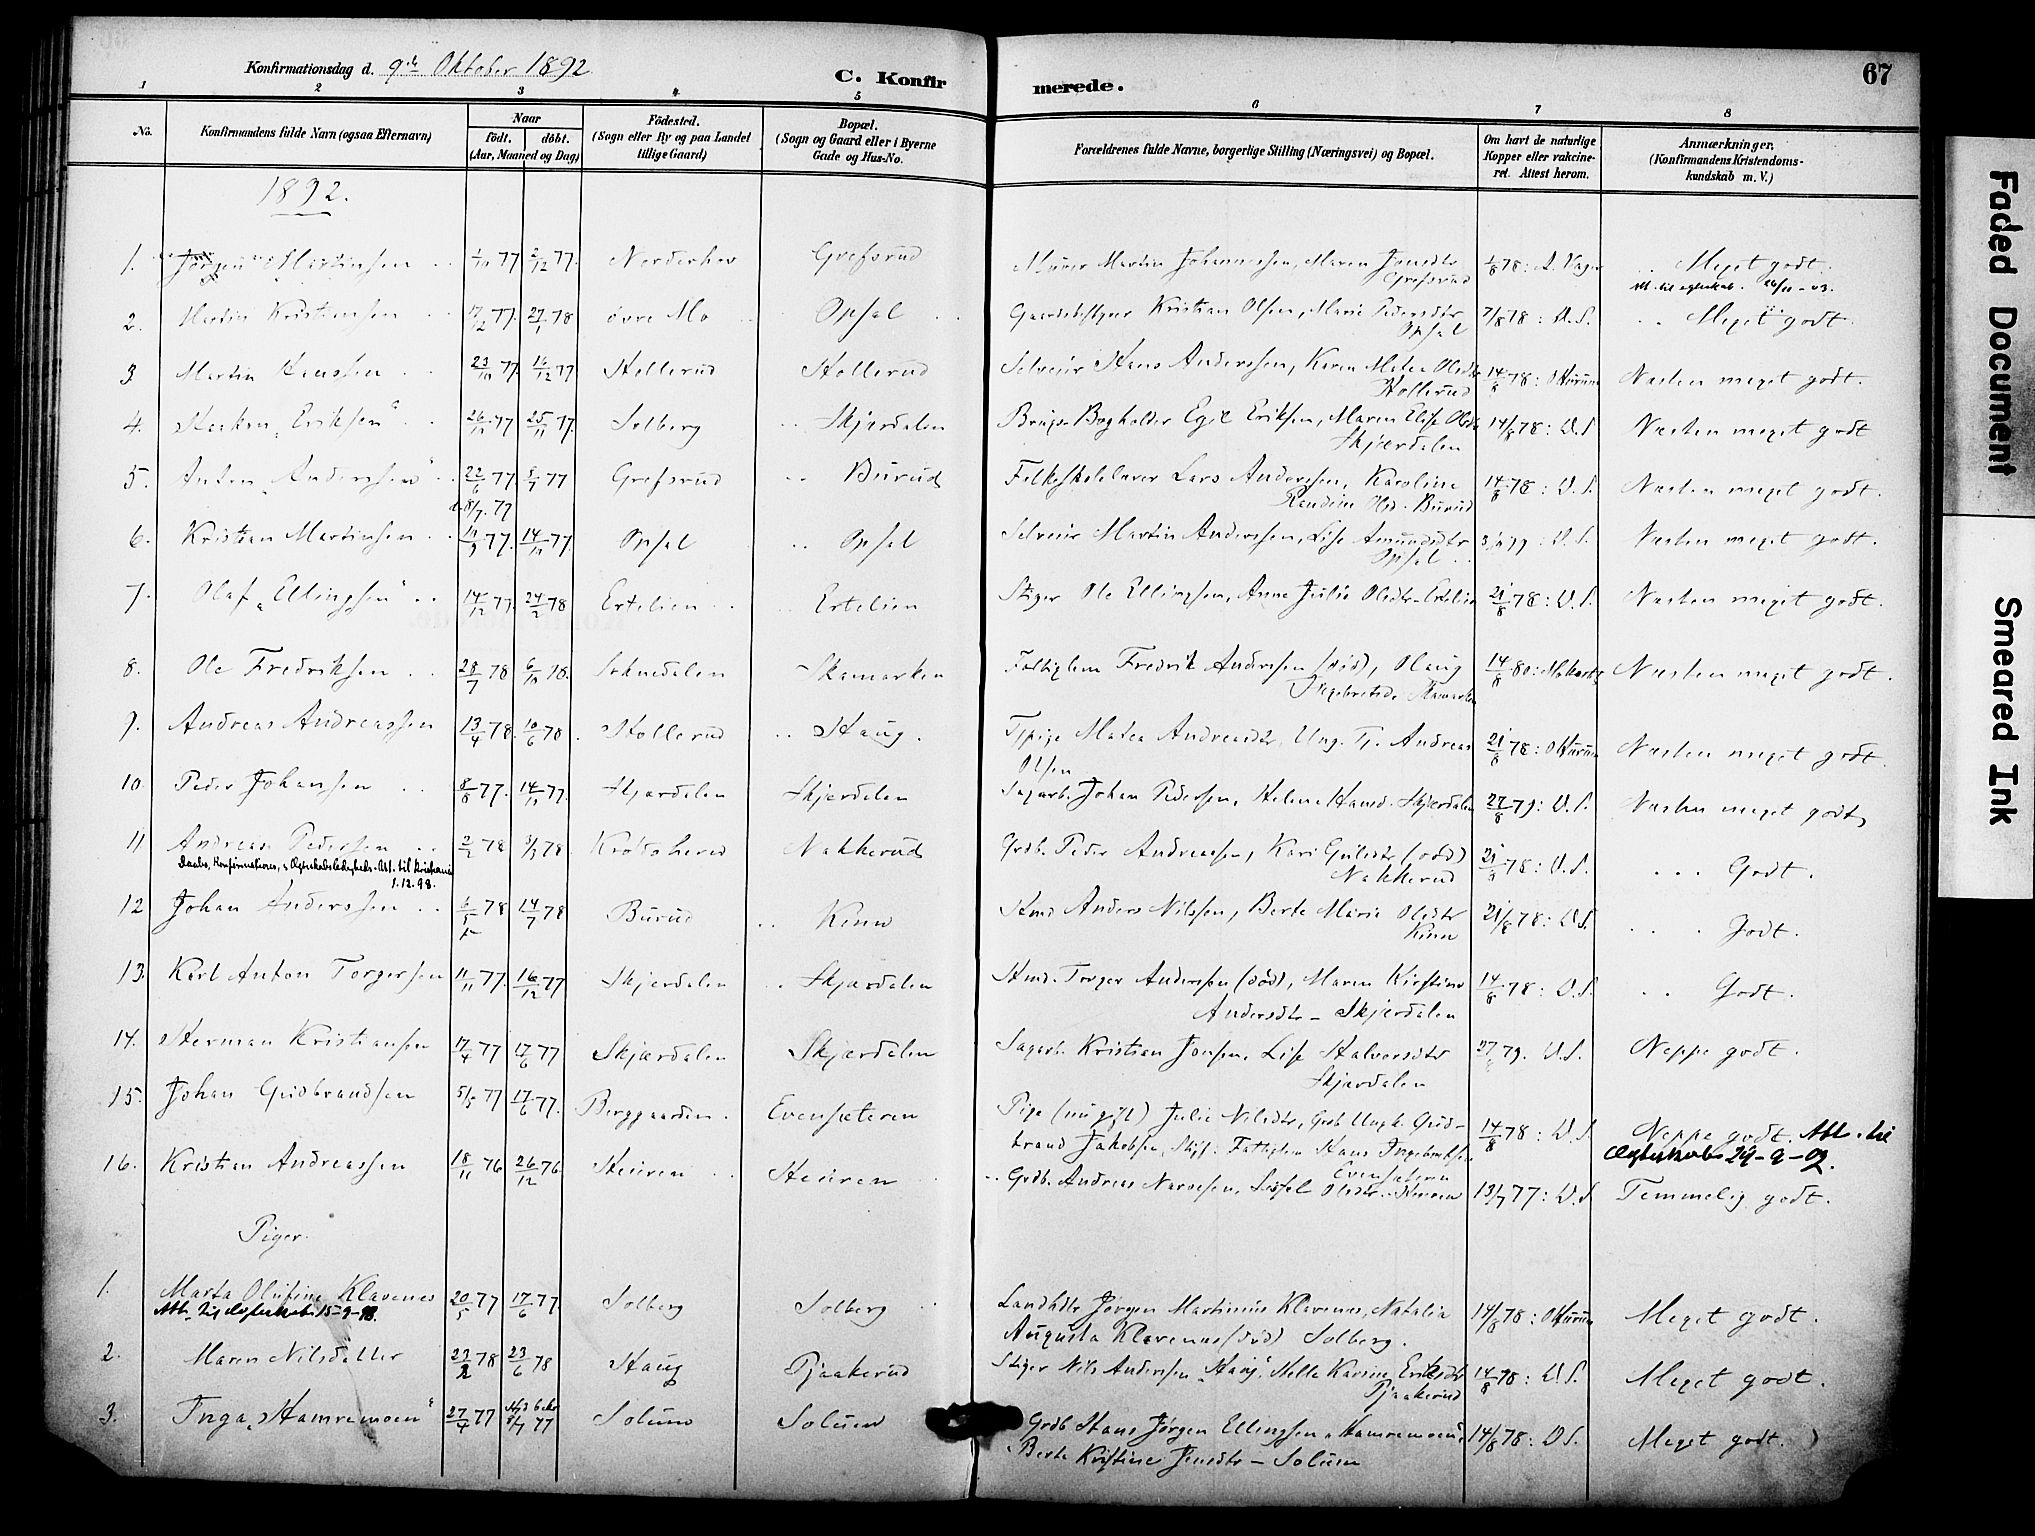 Konfirmationsdag d. 9de Oktober 1892
C. Konfirmerede.
67
1 2 3 4 5 6 7 8
No.
Konfirmandens fulde Navn (ogsaa Efternavn)
Naar
födt. döbt.
(Aar, Maaned og Dag)
Födested.
(Sogn eller By og paa Landet
tillige Gaard)
Bopæl.
(Sogn og Gaard eller i Byerne
Gade og Hus-No.
Forældrenes fulde Navne, borgerlige Stilling (Næringsvei) og Bopæl.
Om havt de naturlige
Kopper eller vakcine-
ret. Attest herom.
Anmærkninger.
(Konfirmandens Kristendoms-
kundskab m. V.)
1892.
1. Jörgen Martinsen 1/10 77 2/12 77. Norderhov Grefsrud Murer Martin Johannessen, Maren Jensdtr 1/8 78: Meget godt.
Grefsrud
Att. til egteskab. 26/11-03.
2. Martin Kristiansen 17/12 77. 27/1 78 övre Mo Opsal Gaardbestyrer Kristian Olsen, Marie Pedersdtr 7/8 78: D. S. Meget godt.
Opsal
3 Martin Hanssen 23/10 77 16/12 77 Hollerud Hollerud Selveier Hans Anderssen, Karen Matea Olsdtr 14/8 78: Næsten meget godt.
Hollerud
4. Haakon "Eriksen" 26/10 77 25/11 77. Solberg Skjærdalen Brugs-Bogholder Egil Eriksen, Maren Elise Olsdtr 14/8 78: D. S. Næsten meget godt
Skjærdalen
5. Anton "Anderssen" 22/6 77 5/7 77 Grefsrud Burud Folkeskolelærer Lars Anderssen, Karoline 14/8 78: D. S. Næsten meget godt.
8/7. 77
Randine Olsd. Burud
6. Kristian Martinsen 10/9 77. 14/10 77. Opsal Opsal Selveier Martin Anderssen, Lise Amundsdtr D. S. Næsten meget godt.
Opsal
7. Olaf "Ellingsen" 14/12 77. 24/2 78 Ertelien Ertelien Stiger Ole Ellingsen, Anne Julie Olsdtr Ertelien 21/8 78: D. S. Næsten meget godt.
8. Ole Fredriksen 28/7 78 6/10 78. Soknedalen Skamarken Fattiglem Fredrik Anderssen (död), Olaug 14/8 80: Næsten meget godt.
Ingebretsd.
9. Andreas Andreassen 13/4 78. 10/6 78. Hollerud Haug. Tjpige Matea Andreasdtr, Ung. Tj. Andreas 21/8 78: Næsten meget godt.
Olsen
10. Peder Johansen 8/8 77. 14/10 77. Skjærdalen Skjærdalen Sagarb. Johan Pedersen, Helene Hansd. Skjærdalen 27/8 79: D. S. Næsten meget godt
11 Andreas Pedersen 2/2 78 3/3 78 Krödsherred Nakkerud Grdb. Peder Andreassen, Kari Gulsdtr (död) 21/8 78: D. S. Godt.
Nakkerud
Daabs, Konfirmations, & Ægteskabsledigheds-Att. til Kristiania
1.12.98.
12 Johan Anderssen 6/5 78 14/7 78 Burud Kinn Hmd Anders Nilssen, Berte Marie Olsdtr 21/8 78: D. S. Godt.
Kinn
13. Karl Anton Torgersen 11/11 77. 16/12 77 Skjærdalen Skjærdalen Hmd. Torger Anderssen (död), Maren Kirstine 14/8 78: D. S. Godt.
Andersdtr - Skjærdalen
14. Herman Kristiansen 17/4 77 17/6 77 Skjærdalen Skjærdalen Sagarb. Kristian Jonsen, Lise Halvorsdtr 27/8 79. D. S. Neppe godt.
Skjærdalen
15. Johan Gudbrandsen 5/5 77 17/6 77. Berggaarden. Evensæteren Pige (nu gift) Julie Nilsdtr, Grdb. Ungk. Gud-
brand Jakobsen, Stiff: Fattiglem Hans Ingebretsen 14/8 78: D. S. Neppe godt. Att. til
Evensætern
Ægteskab 29-9-02.
16. Kristian Andreassen 18/11 76 26/12 76 Heieren Heieren Grdb. Andreas Narvesen, Olsdtr Heieren 13/7 77: D. S. Temmelig godt.
Piger.
1. Marta Olufine Klavenes 20/5 77 17/6 77. Solberg Solberg Landhdlr Jörgen Martinius Klavenes, Natalia 14/8 78: Meget godt.
Att. til Ægteskab 15-9-98.
Augusta Klavenes (död) Solberg.
2. Maren Nilsdatter 23/2 78 23/6 78 Haug Pjaakerud Stiger Nils Anderssen "Haug", Helle Karine Eriksdtr 14/8 78: D. S. Meget godt.
Pjaakerud
3. Inga "Hamremoen" 27/4 77 8/7 77 Solum Solum Grdb Hans Jörgen Ellingsen "Hamremoen", 14/8 78: D. S. Meget godt.
Berte Kristine Jensdtr - Solum
Faded Document
Smeared Ink